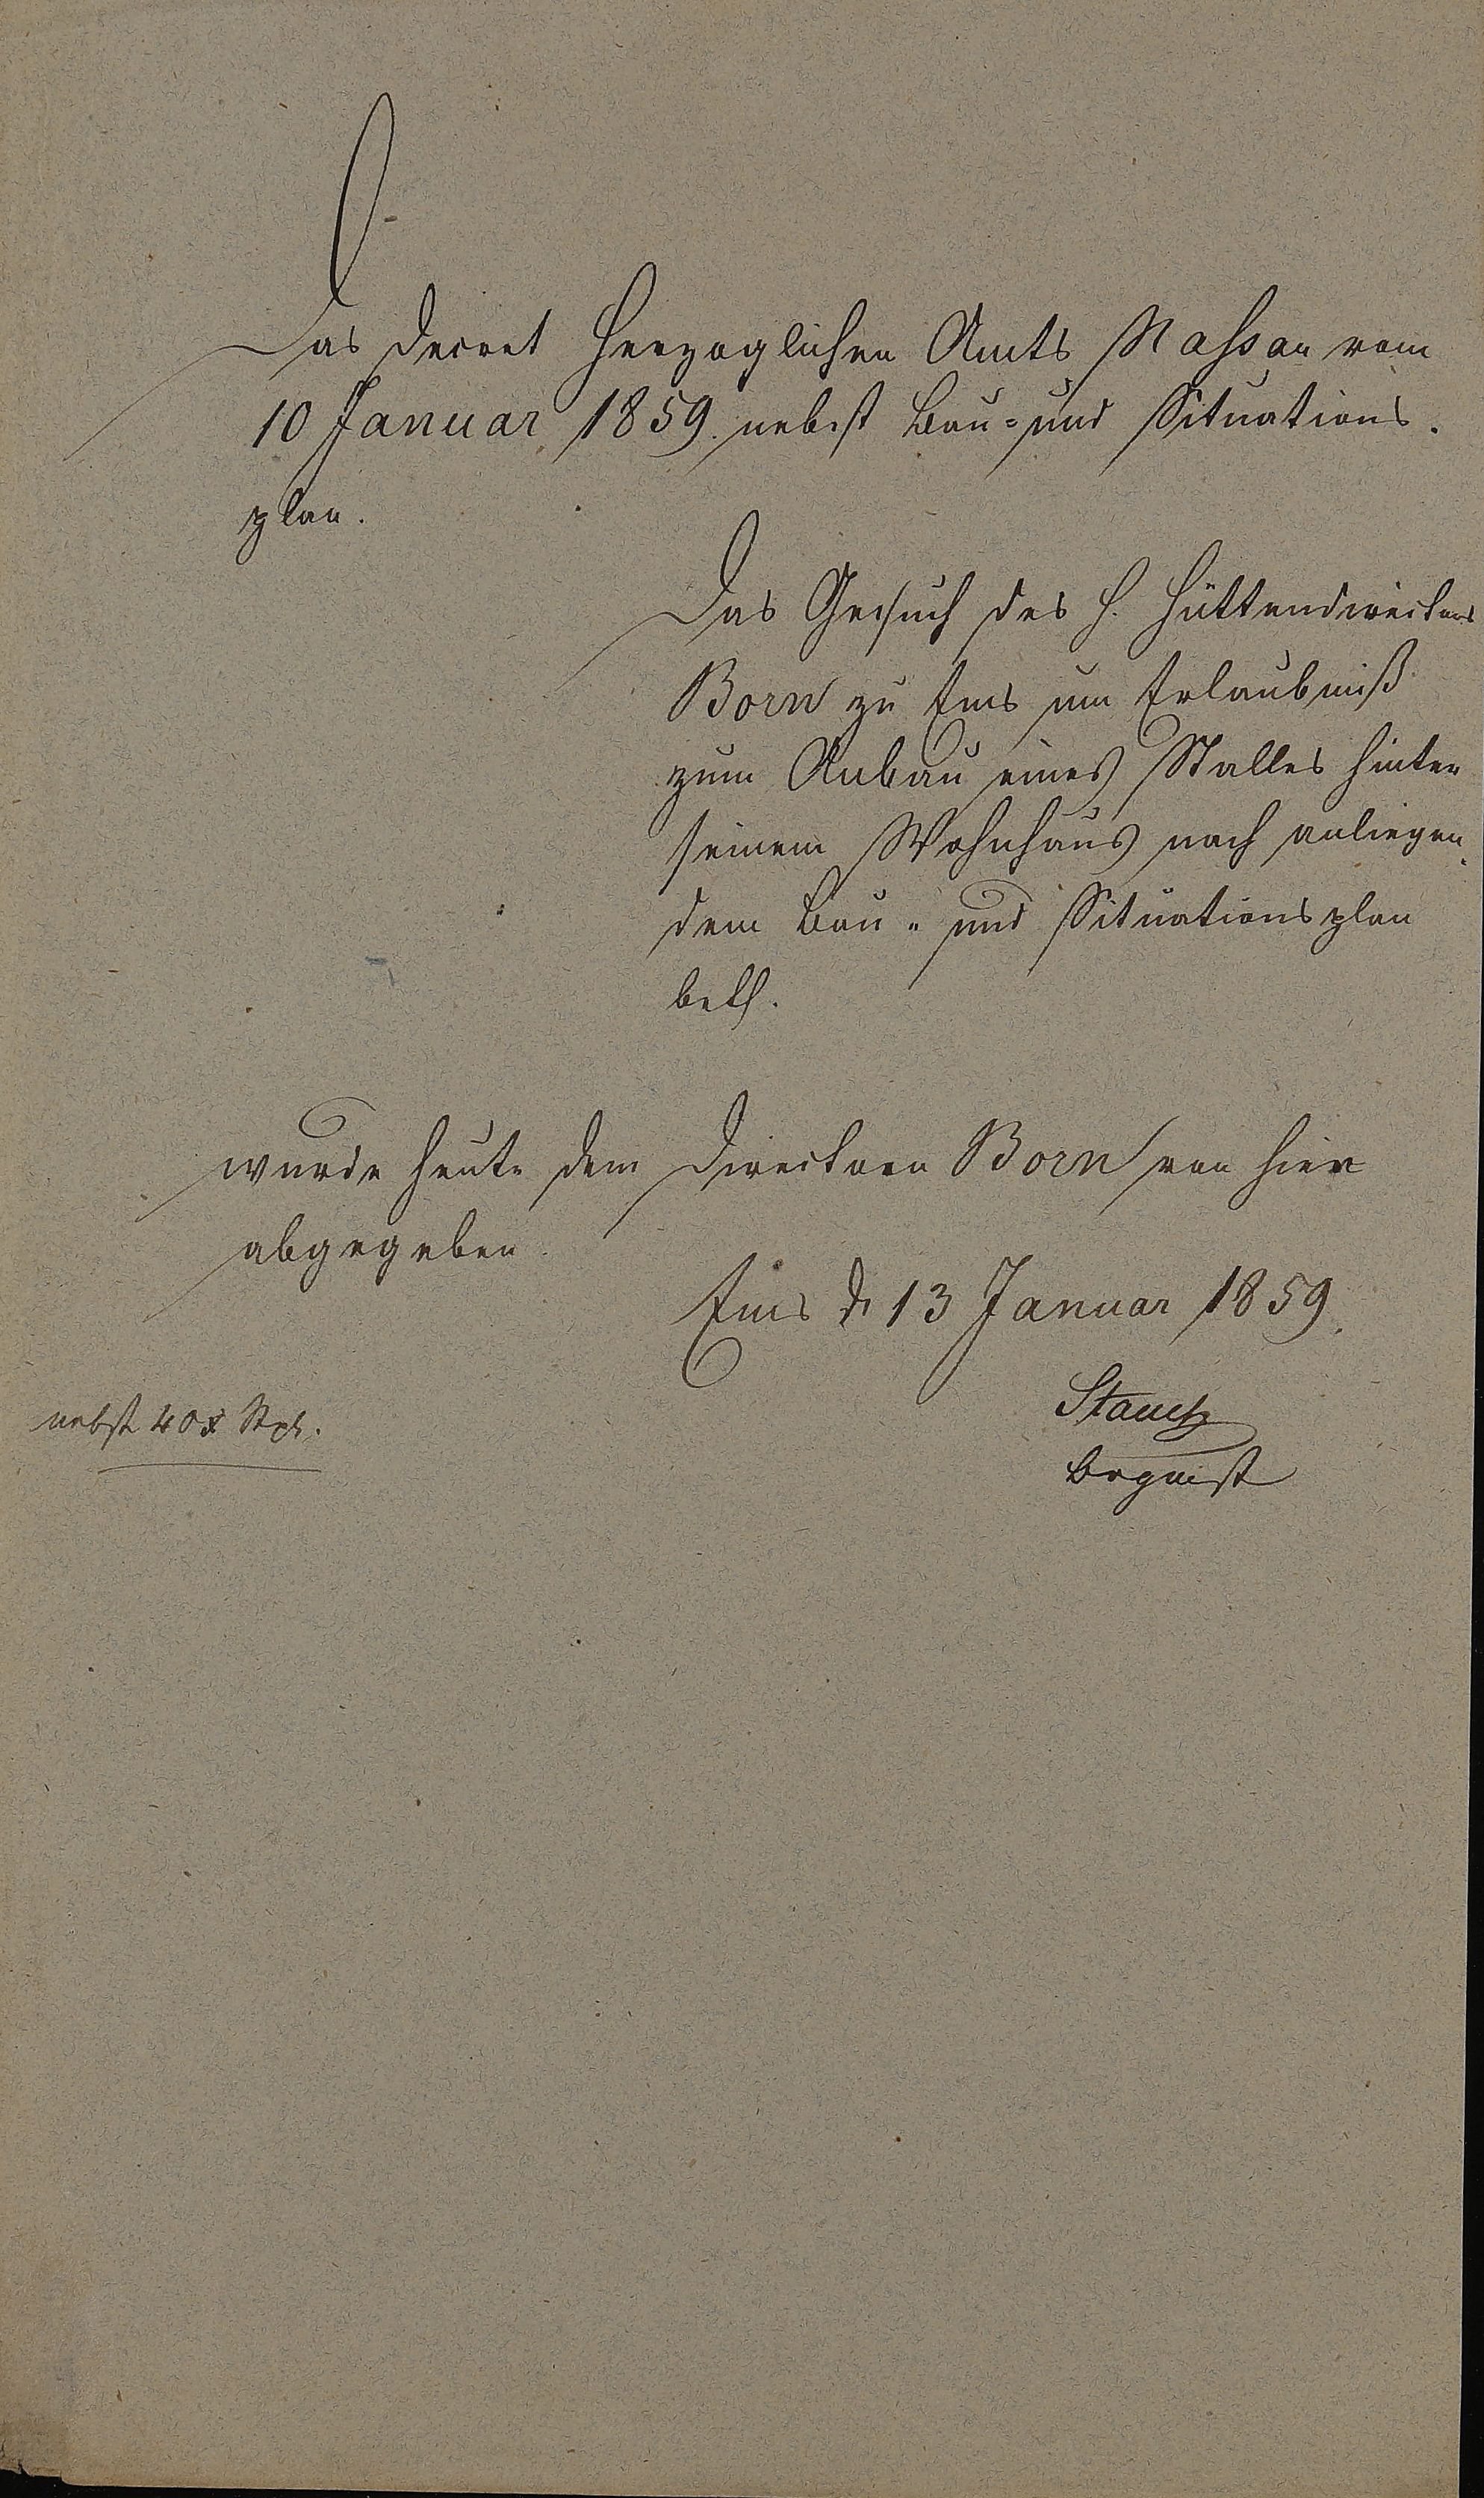 Das Decret Herzoglichen Amts Nassau vom
10 Januar 1859. nebst Bau- und Situations-
plan.
Das Gesuch des H. Hüttendirectors
Born zu Ems um Erlaubniß
zum Anbau eines Stalles hinter
seinem Wohnhaus nach anliegen-
dem Bau- und Situationsplan
betf.
wurde heute dem Directoren Born von hier
abgegeben.
Ems d 13 Januar 1859.
nebst 40 x